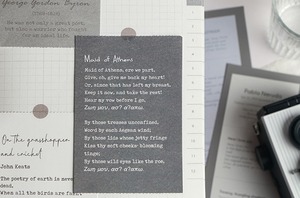 George Gordon Byron
(1788-1824)
He was not only a great poet,
but also a warrior who fought
for an ideal life.
Maid of Athens
Maid of Athens, ere we part,
Give, oh, give me back my heart!
Or, since that has left my breast,
Keep it now, and take the rest!
Hear my vow before I go,
Ζωη μου, σας αγαπω.
By those tresses unconfined,
Woo'd by each Aegean wind;
By those lids whose jetty fringe
Kiss thy soft cheeks' blooming
tinge;
By those wild eyes like the roe,
Ζωη μου, σας αγαπω.
On the grasshopper
and cricket
John Keats
The poetry of earth is never
dead,
When all the birds are faint